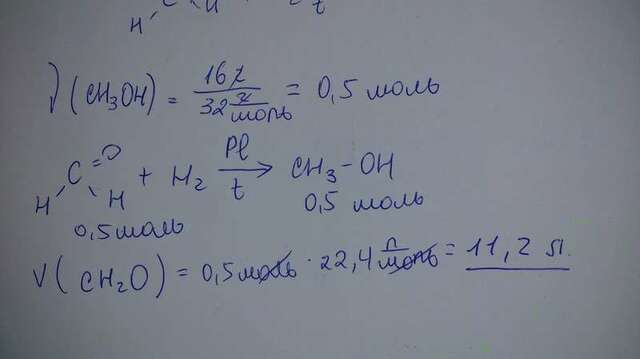 H C H t
ν(CH₃OH) = 16г / 32 г/моль = 0,5 моль
H C =O H + H₂ Pt → t CH₃-OH
0,5 моль 0,5 моль
V(CH₂O) = 0,5 моль · 22,4 л/моль = 11,2 л.